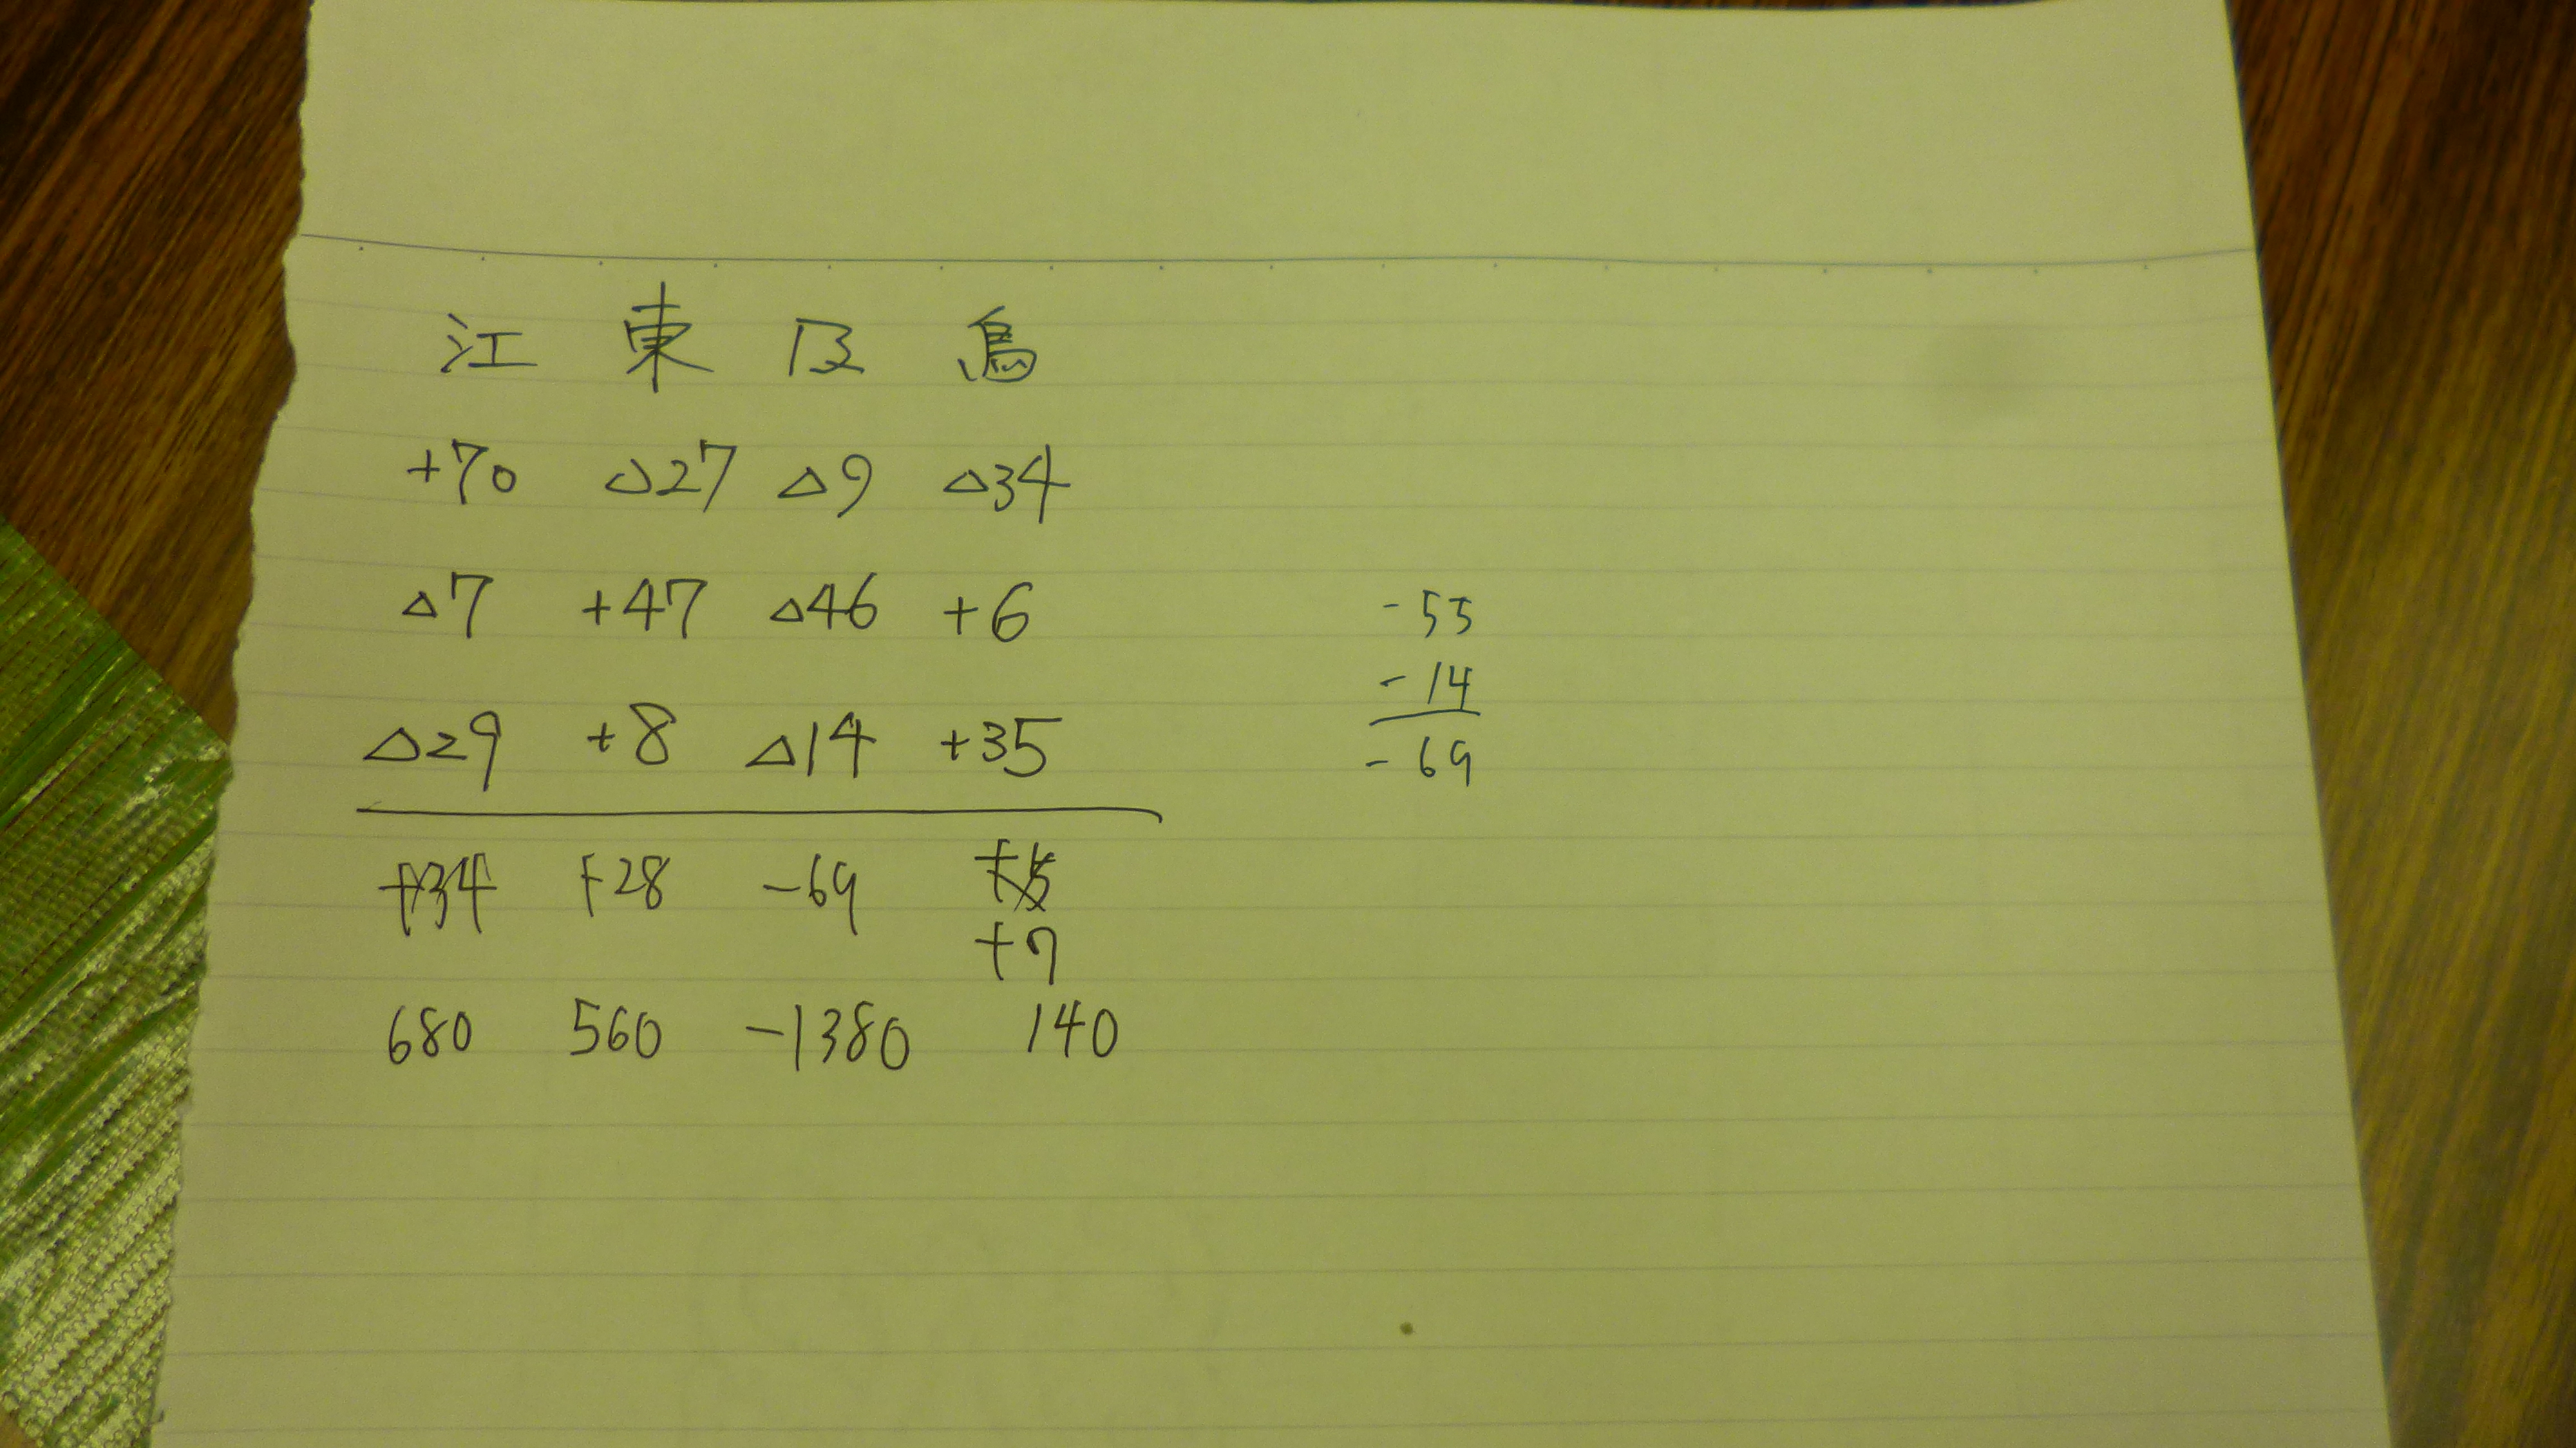 江 東 段 鳥
+70 △27 △9 △34
△7 +47 △46 +6
△29 +8 △14 +35
+34 +28 -69
+7
680 560 -1380 140
-55
-14
-69